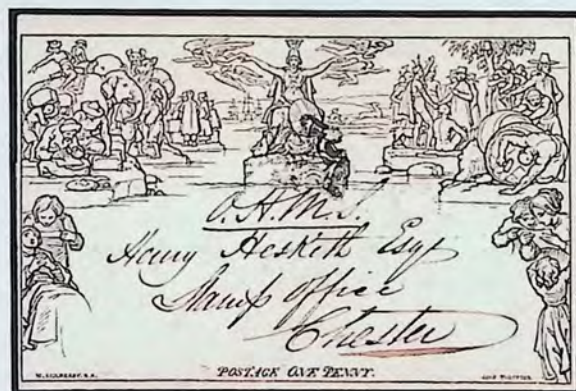 O.H.M.S.
Henry Hesketh Esqr
Stamp Office
Chester
W. MULREADY. R.A.
POSTAGE ONE PENNY.
JOHN THOMPSON